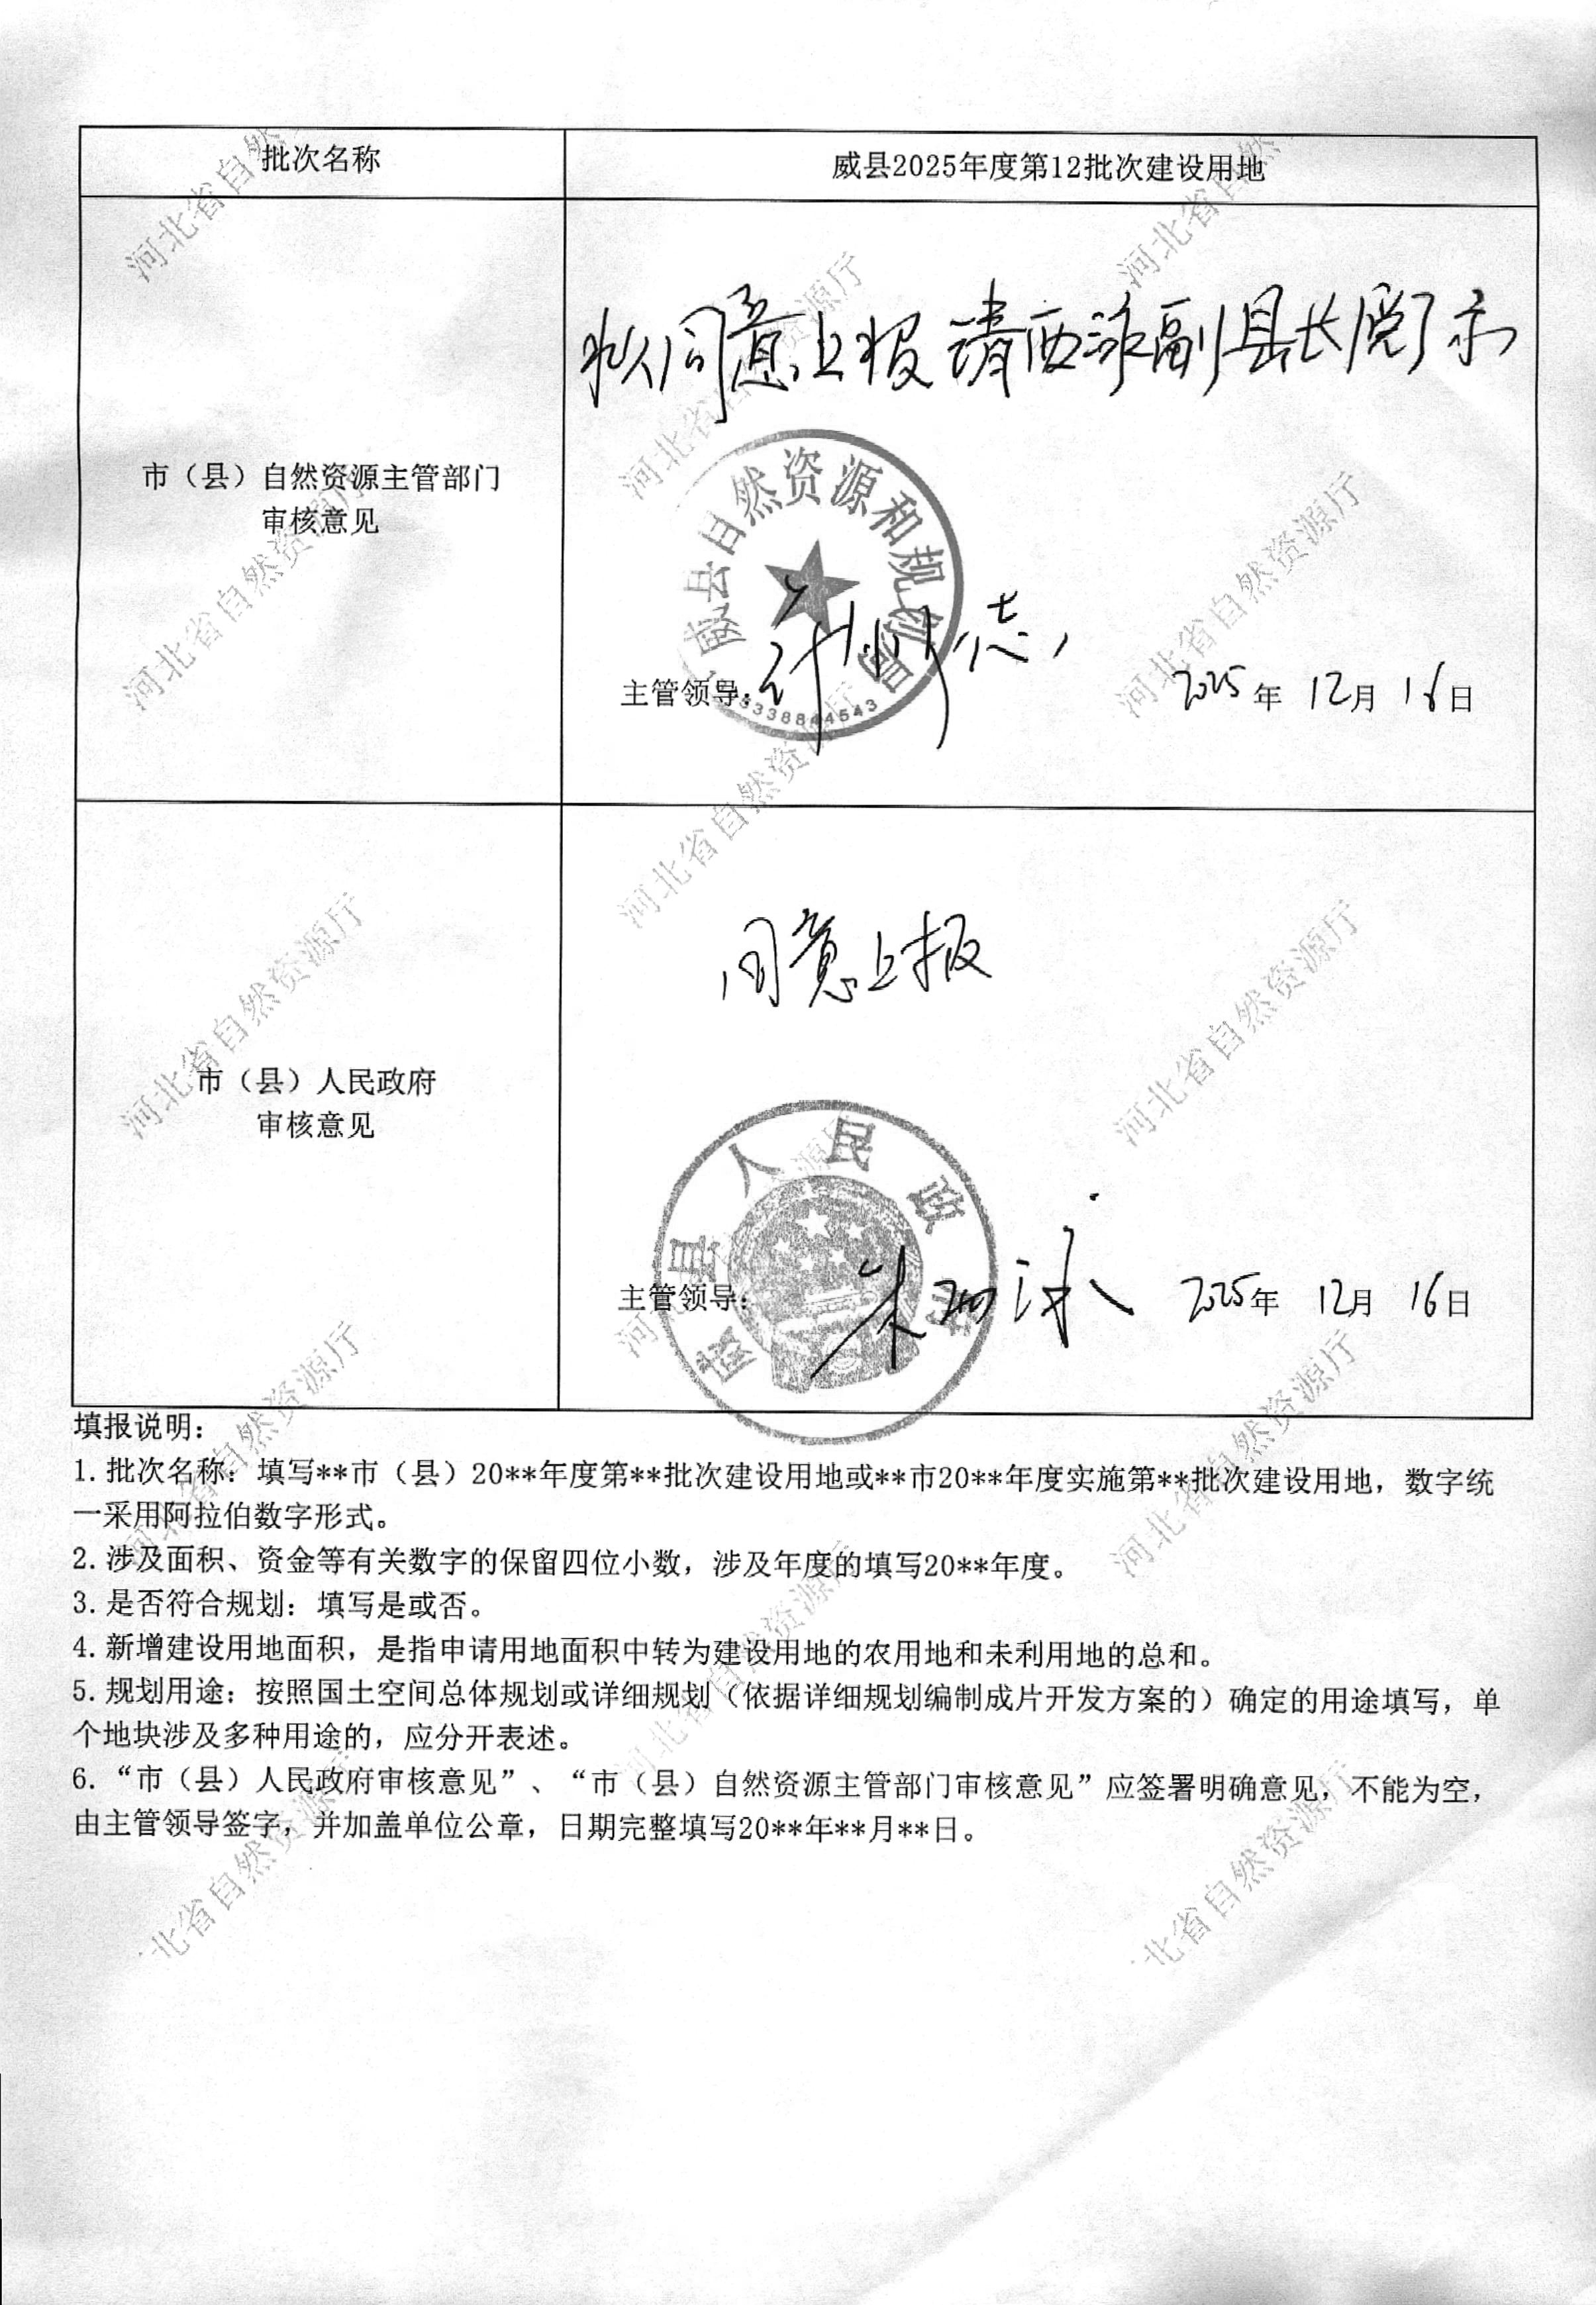 批次名称
威县2025年度第12批次建设用地
市（县）自然资源主管部门
审核意见
拟同意上报 请西泳副县长阅示
威县自然资源和规划局
主管领导：
2025年 12月 16日
市（县）人民政府
审核意见
同意上报
威县人民政府
主管领导：
2025年 12月 16日
填报说明：
1.批次名称：填写**市（县）20**年度第**批次建设用地或**市20**年度实施第**批次建设用地，数字统
一采用阿拉伯数字形式。
2.涉及面积、资金等有关数字的保留四位小数，涉及年度的填写20**年度。
3.是否符合规划：填写是或否。
4.新增建设用地面积，是指申请用地面积中转为建设用地的农用地和未利用地的总和。
5.规划用途：按照国土空间总体规划或详细规划（依据详细规划编制成片开发方案的）确定的用途填写，单
个地块涉及多种用途的，应分开表述。
6.“市（县）人民政府审核意见”、“市（县）自然资源主管部门审核意见”应签署明确意见，不能为空，
由主管领导签字，并加盖单位公章，日期完整填写20**年**月**日。
河北省自然资源厅